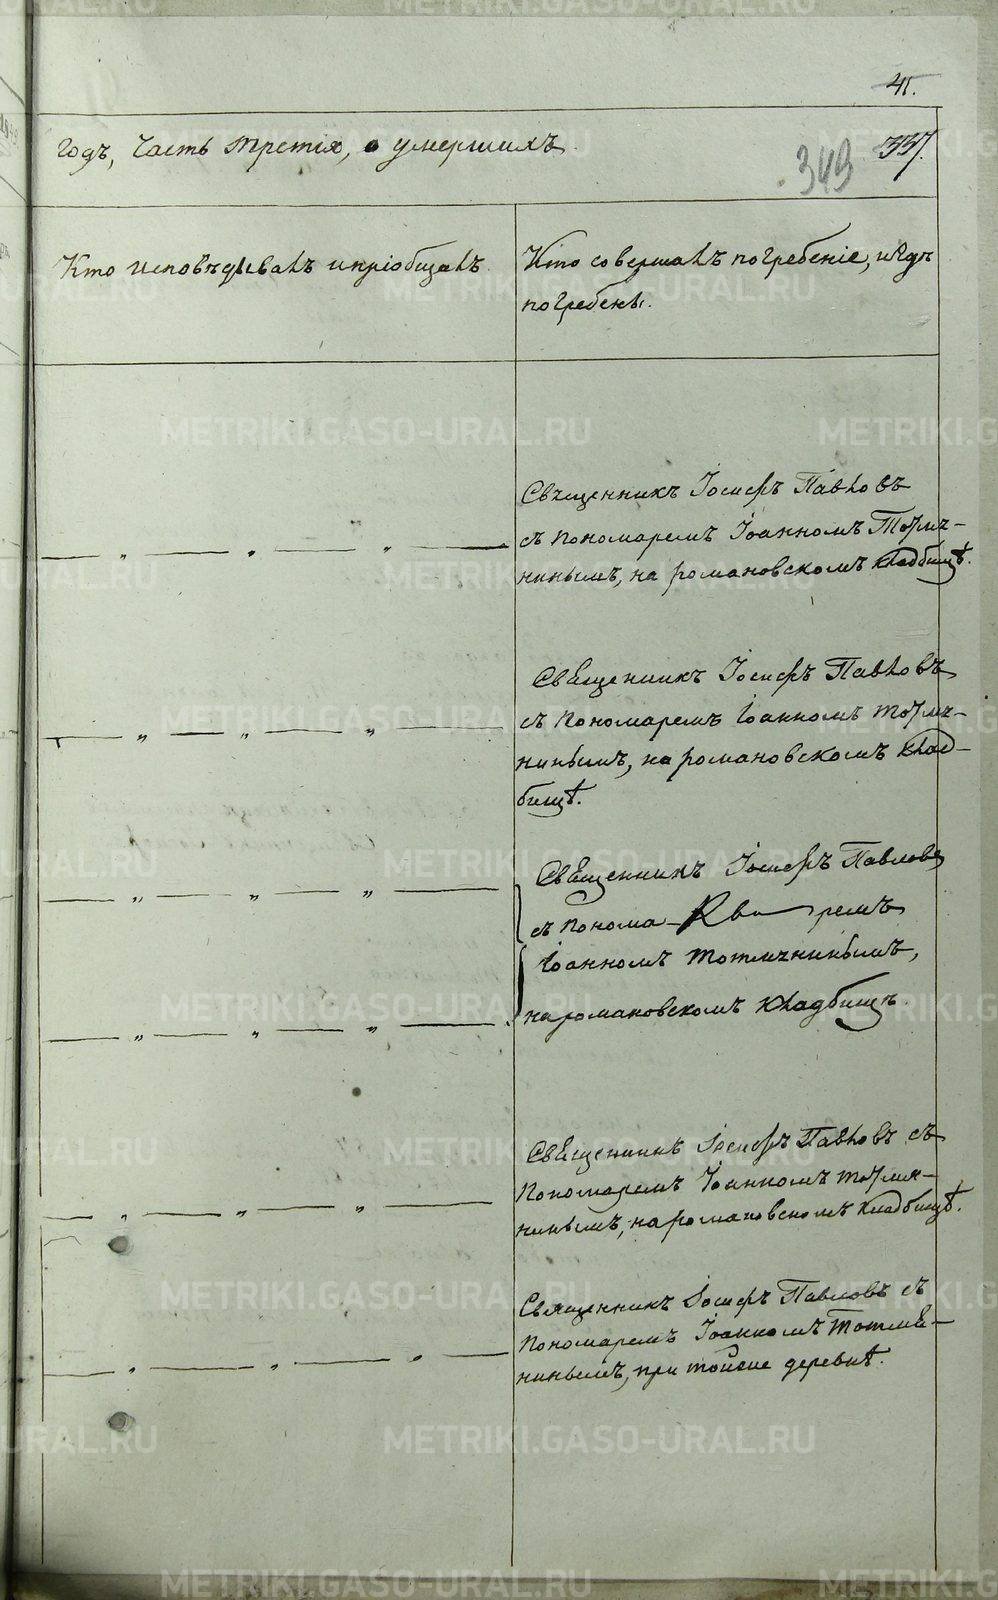 41.
годъ, Часть третія, о умершихъ.
349 337.
Кто исповѣдывалъ и пріобщалъ.
Кто совершалъ погребеніе, и гдѣ
погребены.
Священникъ Іосифъ Павловъ
съ пономаремъ Іоанномъ Тотмѣ-
нинымъ, на романовскомъ кладбищѣ.
Священникъ Іосифъ Павловъ
съ пономаремъ Іоанномъ Тотмѣ-
нинымъ, на романовскомъ клад-
бищѣ.
Священникъ Іосифъ Павловъ
съ понома- ремъ
Іоанномъ Тотмѣнинымъ,
на романовскомъ кладбищѣ.
Священникъ Іосифъ Павловъ съ
Пономаремъ Іоанномъ Тотмя-
нинымъ, на романовскомъ кладбищѣ.
Священникъ Іосифъ Павловъ съ
Пономаремъ Іоанномъ Тотмѣ-
нинымъ, при тойже деревнѣ.
METRIKI.GASO-URAL.RU